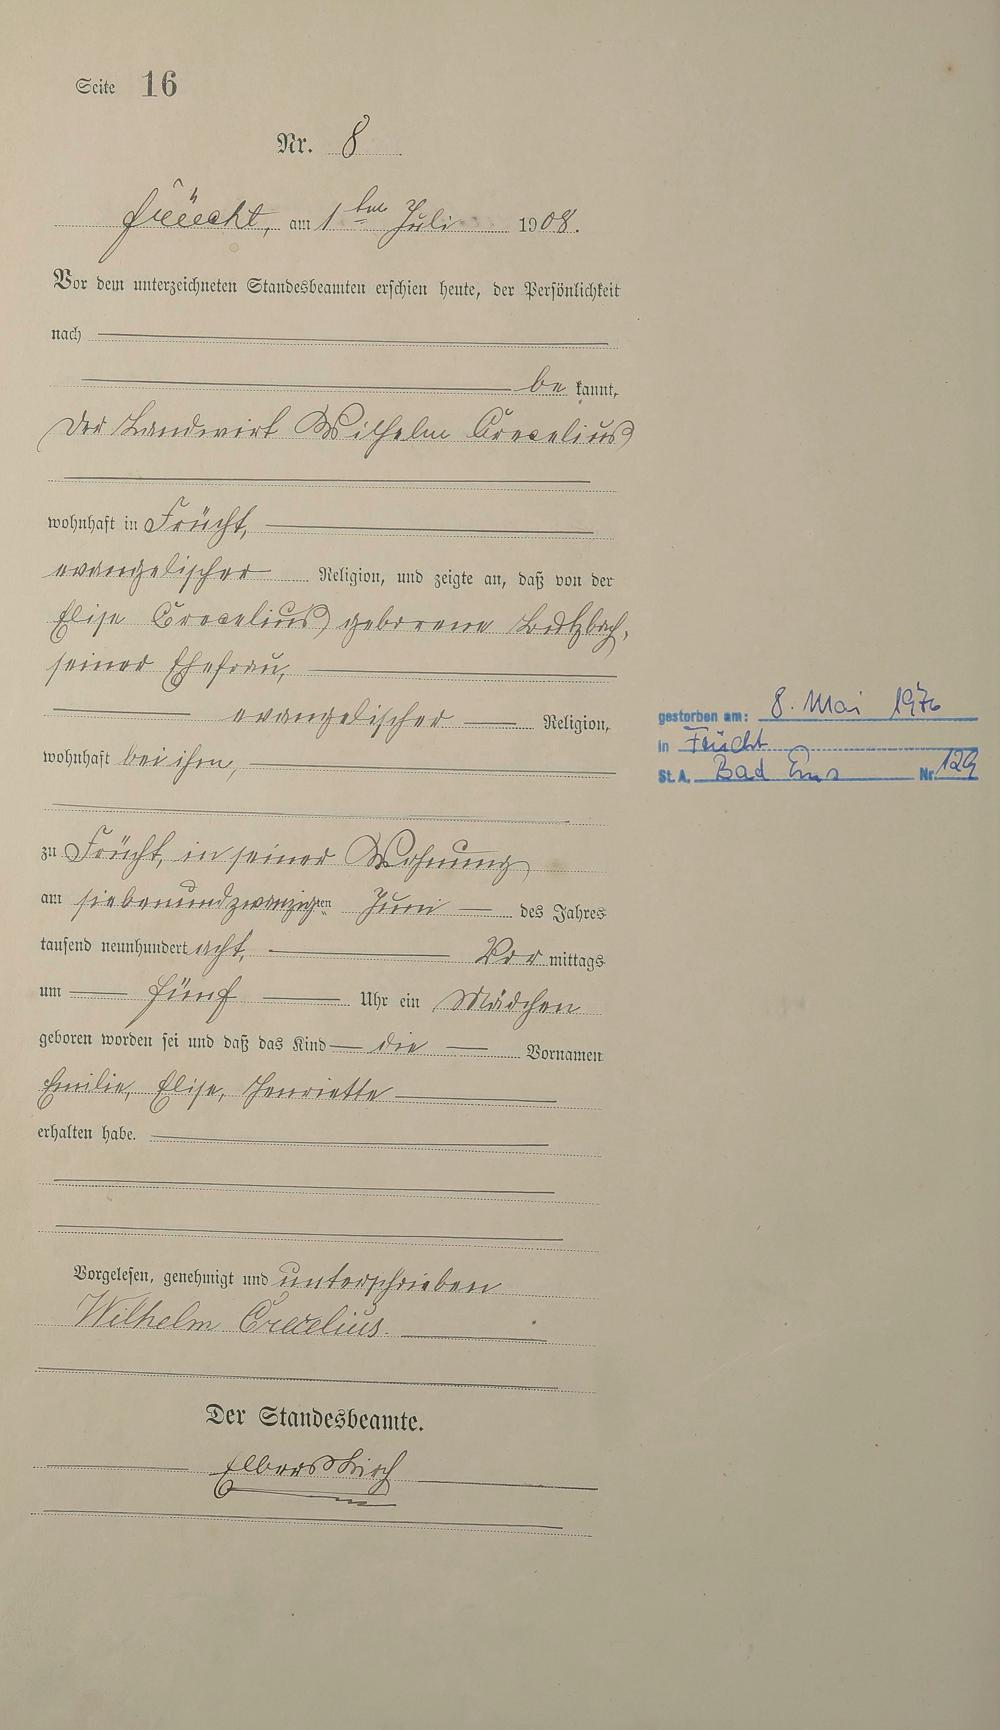 Seite 16
Nr. 8
Früecht, am 1ten Juli 1908.
Vor dem unterzeichneten Standesbeamten erschien heute, der Persönlichkeit
nach
be kannt,
Der Landwirt Wilhelm Crecelius
wohnhaft in Frücht,
evangelischer Religion, und zeigte an, daß von der
Elise Crecelius geborene Butzbach,
seiner Ehefrau,
evangelischer Religion,
wohnhaft bei ihm,
zu Frücht, in seiner Wohnung
am siebenundzwanzigten Juni des Jahres
tausend neunhundert acht, Vor mittags
um fünf Uhr ein Mädchen
geboren worden sei und daß das Kind die Vornamen
Emilie, Elise, Henriette
erhalten habe.
Vorgelesen, genehmigt und unterschrieben
Wilhelm Crecelius.
Der Standesbeamte.
Elberskirch
gestorben am: 8. Mai 1976
in Frücht
St. A. Bad Ems Nr. 129